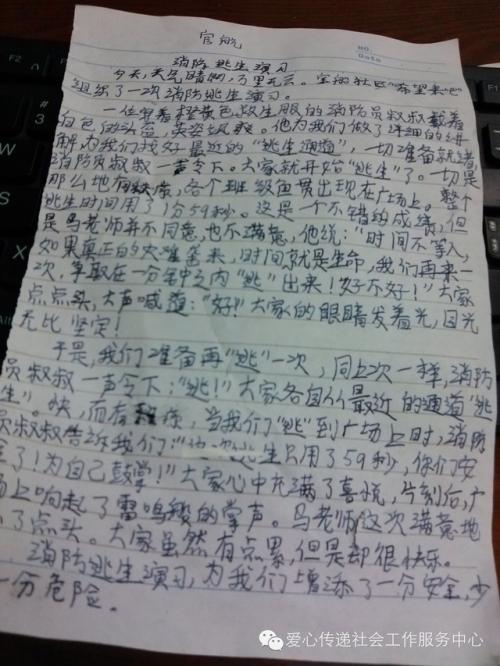 官航
NO.
Date
消防逃生演习
今天,天气晴朗,万里无云。宝翔社区"希望来吧"
组织了一次消防逃生演习。
一位穿着橙黄色救生服的消防员叔叔戴着
白色的头盔,英姿飒爽。他为我们做了详细的讲
解,为我们找好最近的"逃生通道",一切准备就绪,
消防员叔叔一声令下。大家就开始"逃生"了。一切是
那么地有秩序,各个班级鱼贯出现在广场上。整个
逃生时间用了1分59秒。这是一个不错的成绩,但
是马老师并不同意,也不满意,他说:"时间不等人,
如果真正的灾难奎来,时间就是生命,我们再来一
次,争取在一分钟之内"逃"出来!好不好!"大家
点点头,大声喊道:"好!"大家的眼睛发着光,目光
无比坚定!
于是,我们准备再"逃"一次,同上次一样,消防
员叔叔一声令下:"逃!"大家各自从最近的通道"逃
生"。快,而有秩序,当我们"逃"到广场上时,消防
员叔叔告诉我们:"这次逃生只用了59秒,你们安
全了!为自己鼓掌!"大家心中充满了喜悦,片刻后,广
场上响起了雷鸣般的掌声。马老师这次满意地
点了点头。大家虽然有点累,但是却很快乐。
消防逃生演习,为我们增添了一分安全,少
一分危险。
爱心传递社会工作服务中心